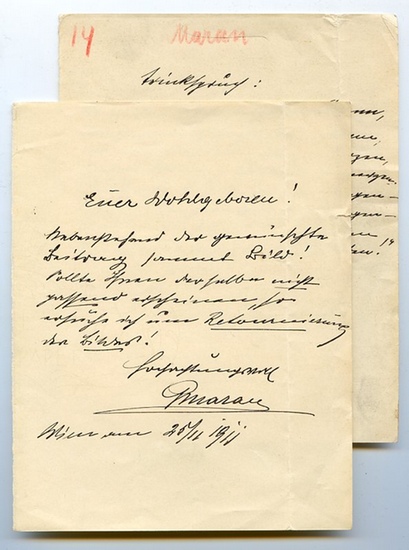 14 Maran
Trinkspruch:
Euer Wohlgeboren!
Nebenstehend der gewünschte
Beitrag sammt Bild!
Sollte Ihnen derselbe nicht
passend erscheinen, so
ersuche ich um Retournierung
des Bildes!
Hochachtungsvoll
GMaran
Wien am 25/11 1911